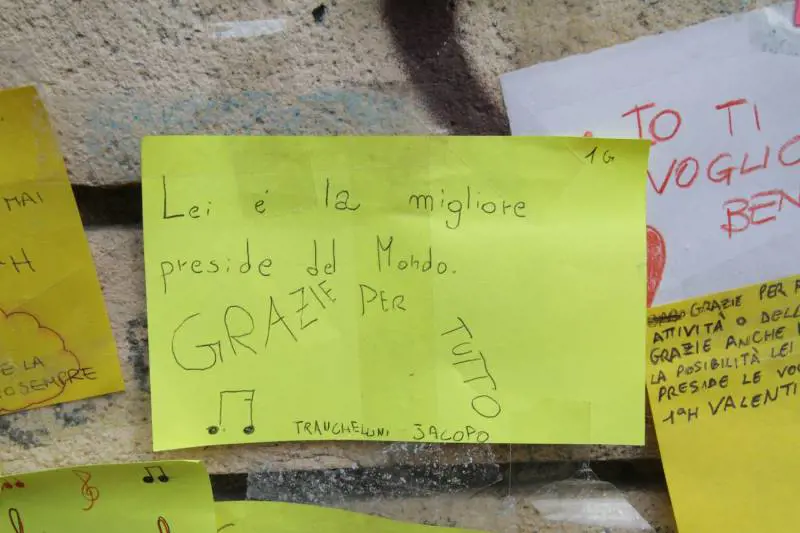 1G
Lei é la migliore
preside del Mondo.
GRAZIE PER
TUTTO
JACOPO
MAI
LA
SEMPRE
TO TI
VOGLIO
BEN
GRAZIE PER
ATTIVITÀ O DELL
GRAZIE ANCHE
LA POSIBILITÀ LEI
PRESIDE LE VO
1ªH VALENTI